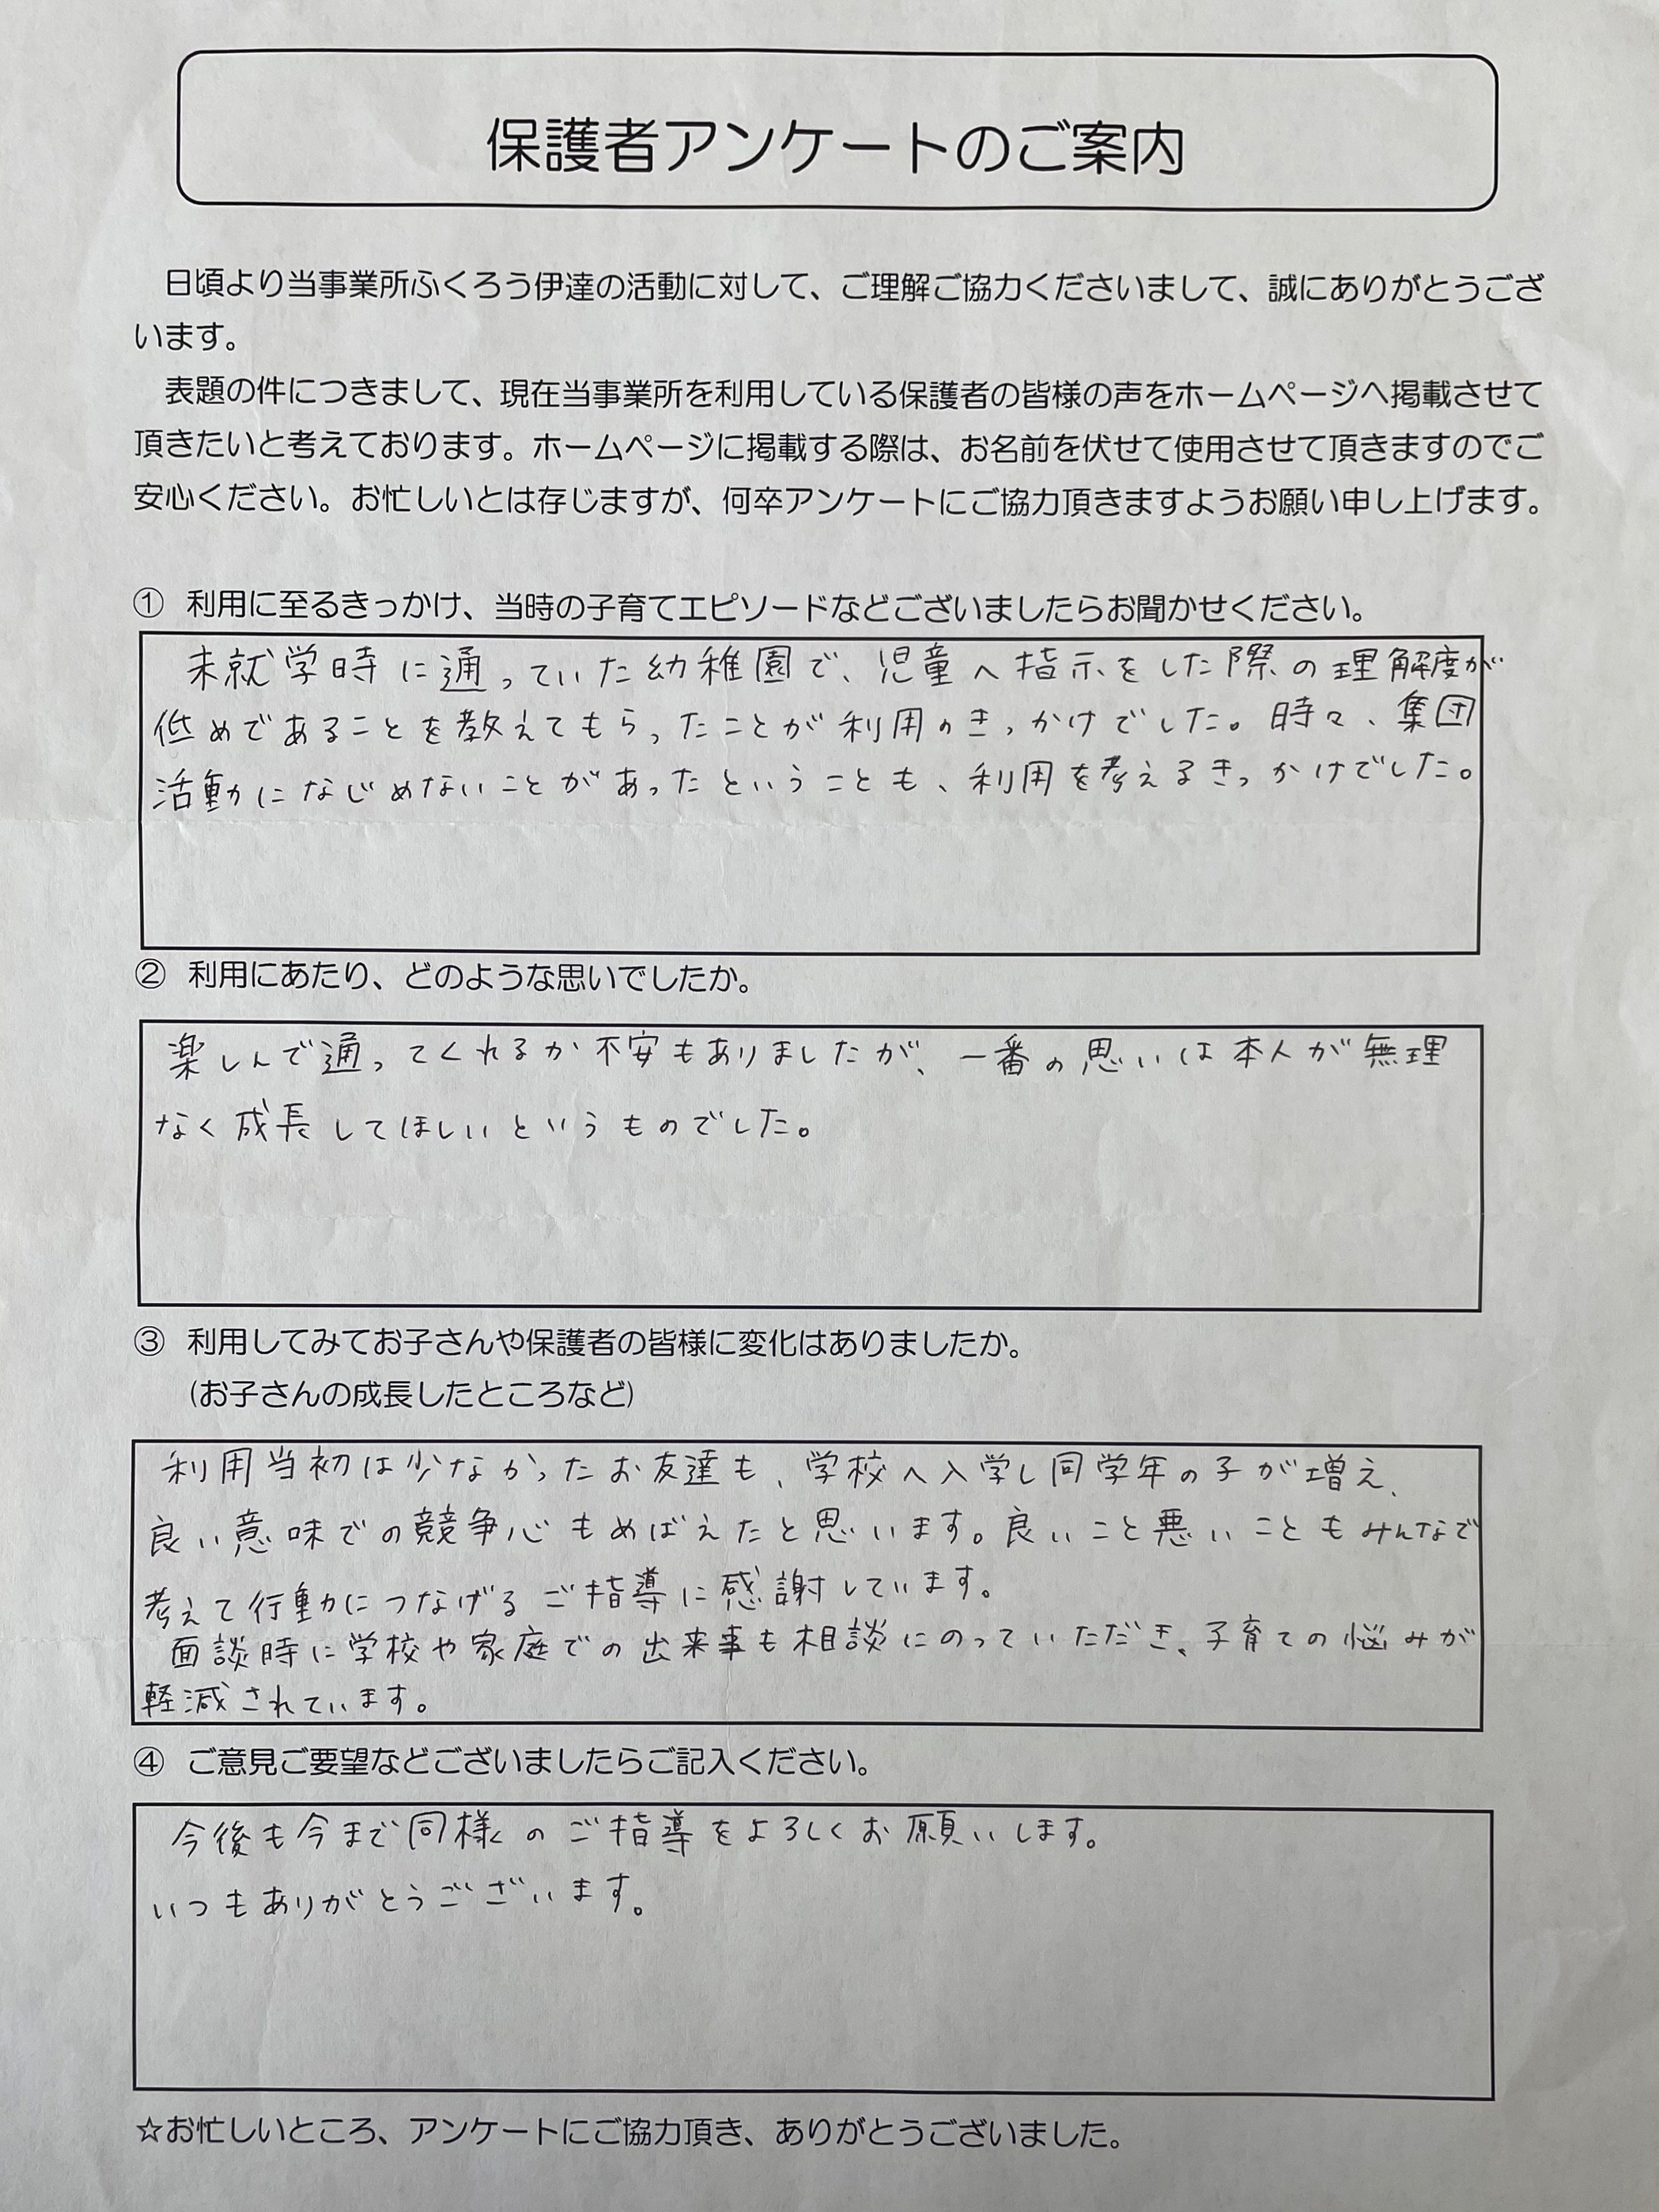 保護者アンケートのご案内
日頃より当事業所ふくろう伊達の活動に対して、ご理解ご協力くださいまして、誠にありがとうござ
います。
表題の件につきまして、現在当事業所を利用している保護者の皆様の声をホームページへ掲載させて
頂きたいと考えております。ホームページに掲載する際は、お名前を伏せて使用させて頂きますのでご
安心ください。お忙しいとは存じますが、何卒アンケートにご協力頂きますようお願い申し上げます。
① 利用に至るきっかけ、当時の子育てエピソードなどございましたらお聞かせください。
未就学時に通っていた幼稚園で、児童へ指示をした際の理解度が
低めであることを教えてもらったことが利用のきっかけでした。時々、集団
活動になじめないことがあったということも、利用を考えるきっかけでした。
② 利用にあたり、どのような思いでしたか。
楽しんで通ってくれるか不安もありましたが、一番の思いは本人が無理
なく成長してほしいというものでした。
③ 利用してみてお子さんや保護者の皆様に変化はありましたか。
(お子さんの成長したところなど)
利用当初は少なかったお友達も、学校へ入学し同学年の子が増え、
良い意味での競争心もめばえたと思います。良いこと悪いこともみんなで
考えて行動につなげるご指導に感謝しています。
面談時に学校や家庭での出来事も相談にのっていただき、子育ての悩みが
軽減されています。
④ ご意見ご要望などございましたらご記入ください。
今後も今まで同様のご指導をよろしくお願いします。
いつもありがとうございます。
☆お忙しいところ、アンケートにご協力頂き、ありがとうございました。